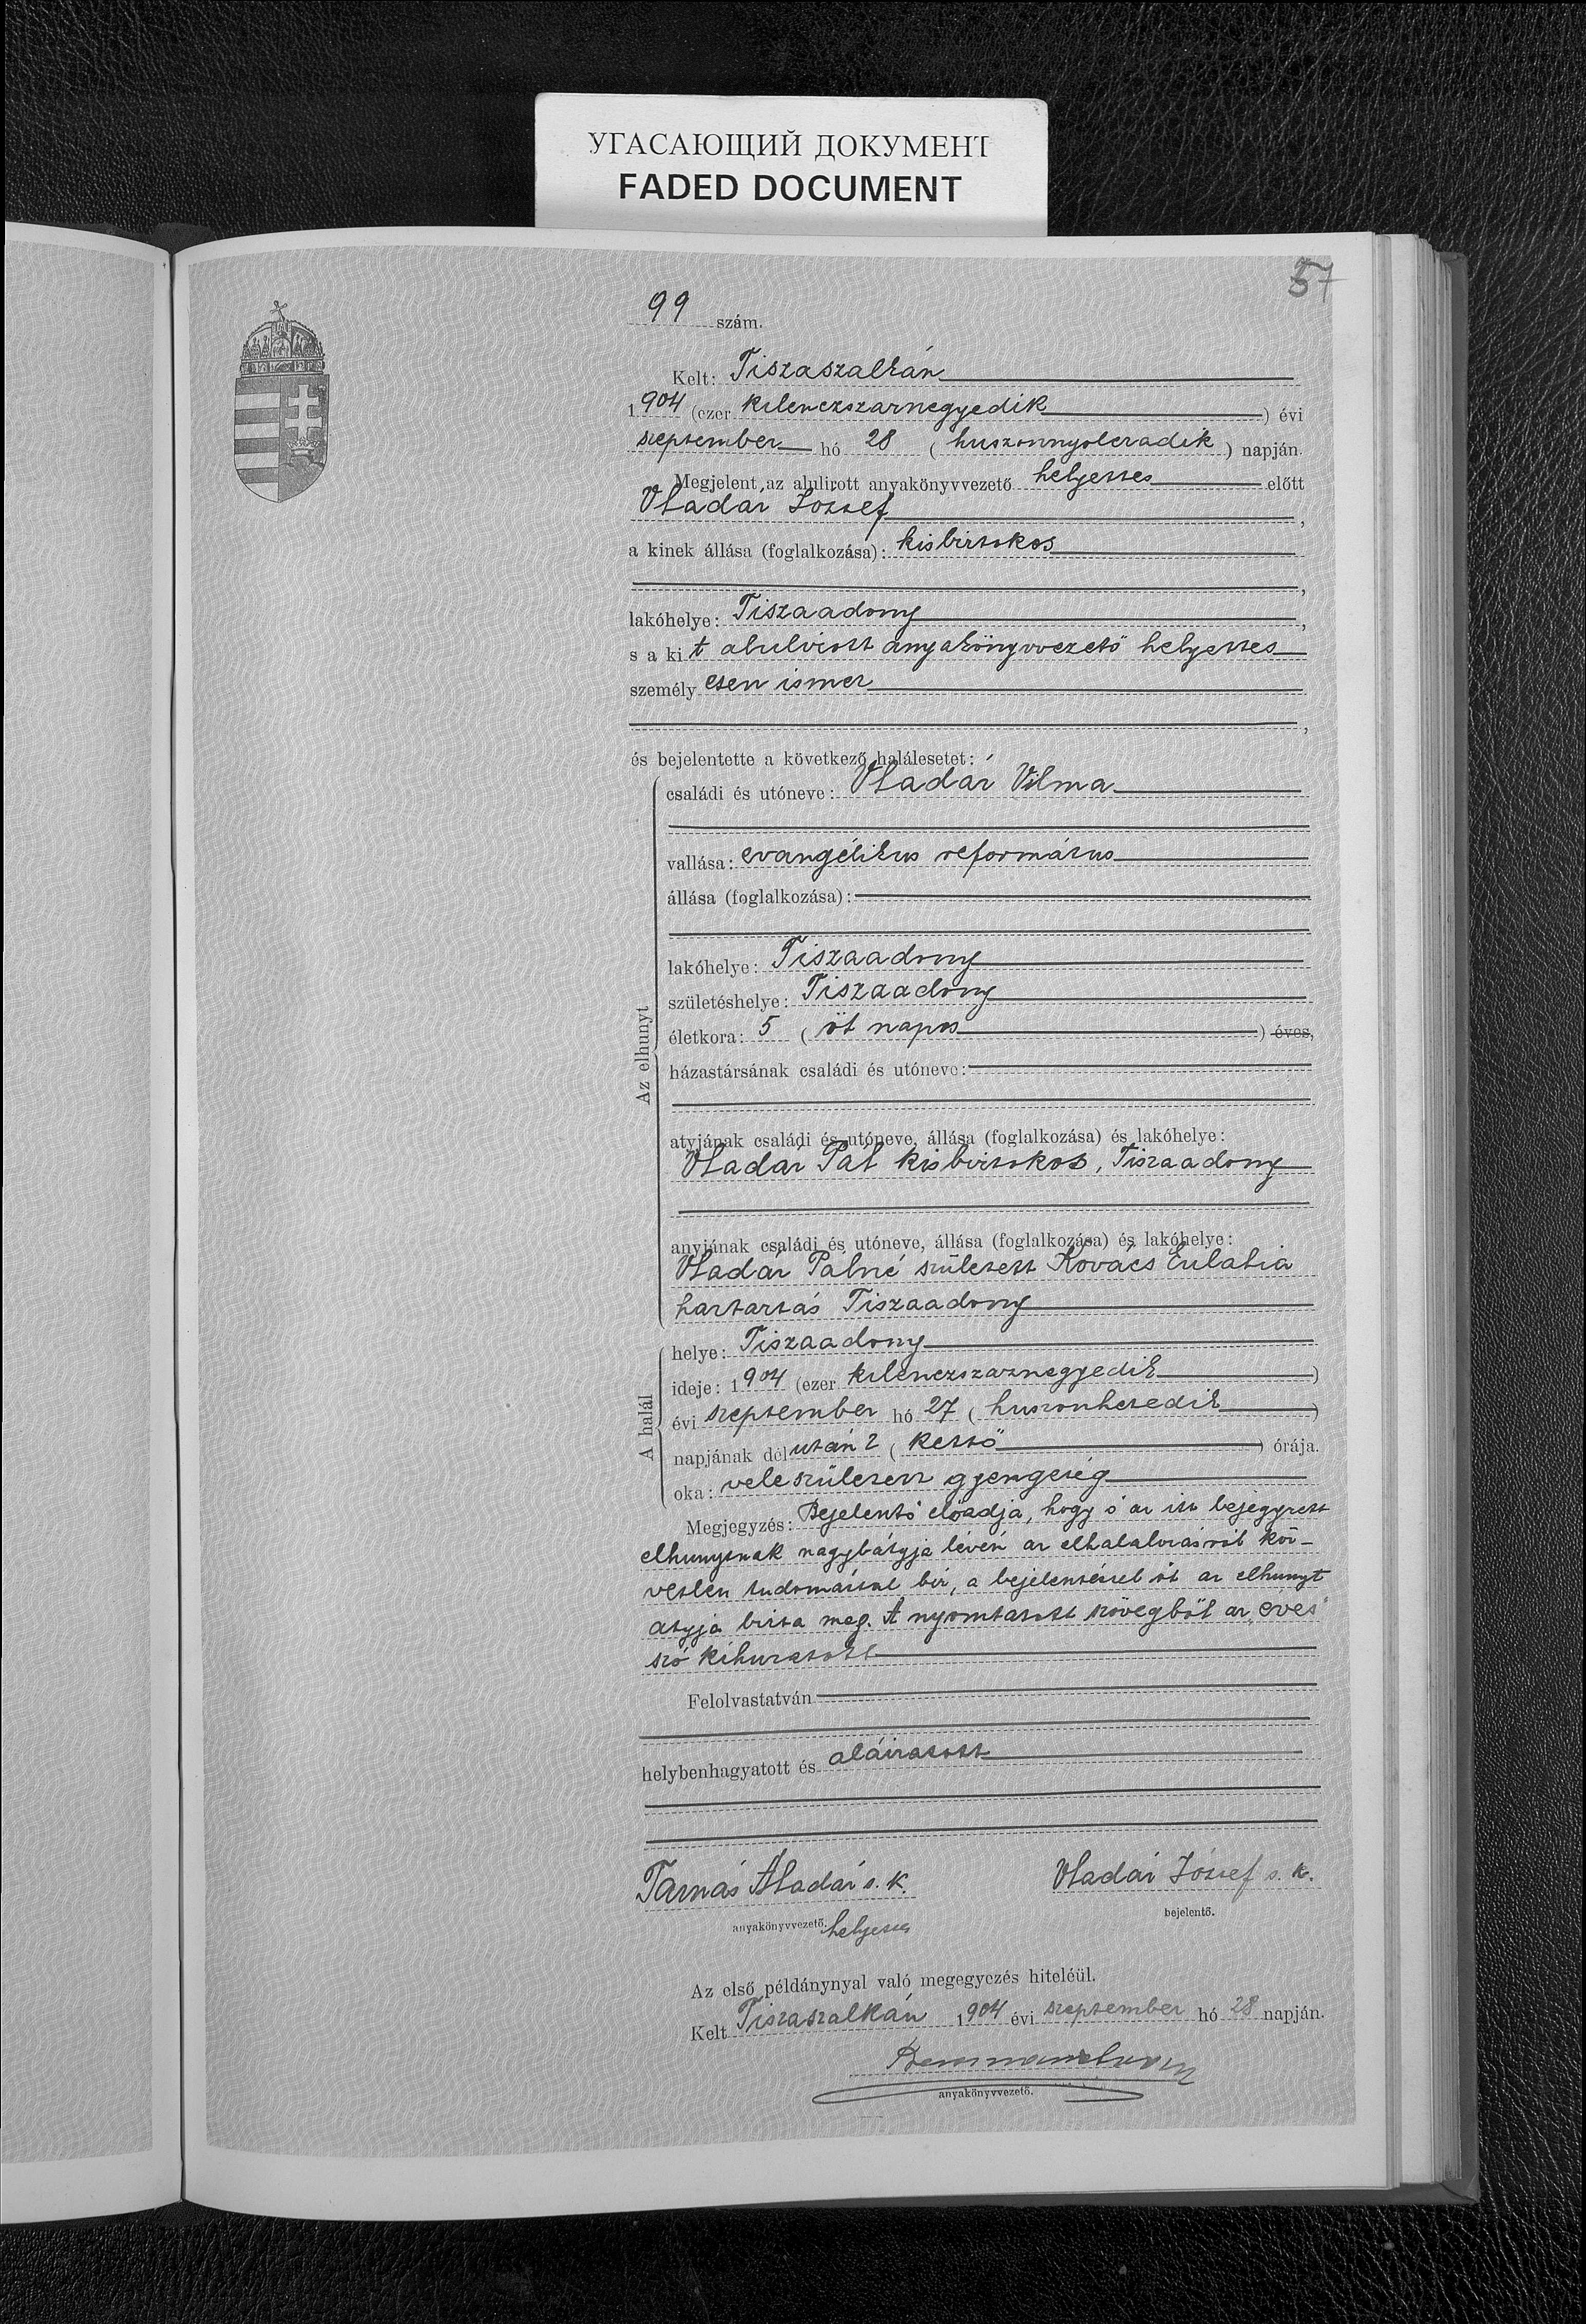 УГАСАЮЩИЙ ДОКУМЕНТ
FADED DOCUMENT
57
99 szám.
Kelt: Tiszaszalkán
1904 (ezer kilenczszáznegyedik) évi
szeptember hó 28 (huszonnyolczadik) napján.
Megjelent az alulirott anyakönyvvezető helyettes előtt
Vladár József,
a kinek állása (foglalkozása): kisbirtokos
,
lakóhelye: Tiszaadony,
s a kit alulirott anyakönyvvezető helyettes
személyesen ismer
,
és bejelentette a következő halálesetet:
Az elhunyt
családi és utóneve: Vladár Vilma
vallása: evangélikus református
állása (foglalkozása):
lakóhelye: Tiszaadony
születéshelye: Tiszaadony
életkora: 5 (öt napos) éves,
házastársának családi és utóneve:
atyjának családi és utóneve, állása (foglalkozása) és lakóhelye:
Vladár Pál kisbirtokos, Tiszaadony
anyjának családi és utóneve, állása (foglalkozása) és lakóhelye:
Vladár Pálné született Kovács Eulalia
háztartás Tiszaadony
A halál
helye: Tiszaadony
ideje: 1904 (ezer kilenczszáznegyedik)
évi szeptember hó 27 (huszonhetedik)
napjának délután 2 (kettő) órája.
oka: veleszületett gyengeség
Megjegyzés: Bejelentő előadja, hogy ő az itt bejegyzett
elhunytnak nagybátyja lévén az elhalálozásról köz-
vetlen tudomással bír, a bejelentéssel őt az elhunyt
atyja bizta meg. A nyomtatott szövegből az "éves"
szó kihuzatott
Felolvastatván
helybenhagyatott és aláiratott
Tamás Aladár s. k. Vladár József s. k.
anyakönyvvezető. helyettes bejelentő.
Az első példánynyal való megegyezés hiteléül.
Kelt Tiszaszalkán 1904 évi szeptember hó 28 napján.
anyakönyvvezető.